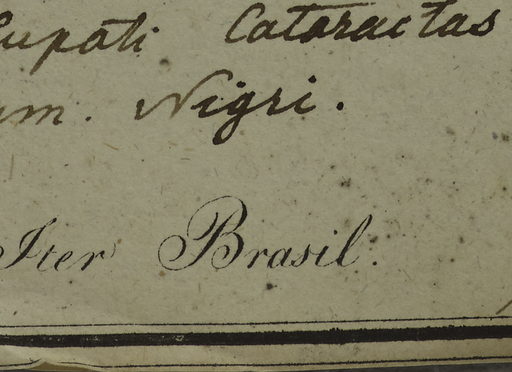 Cupati Cataractas
um. Nigri.
Iter Brasil.